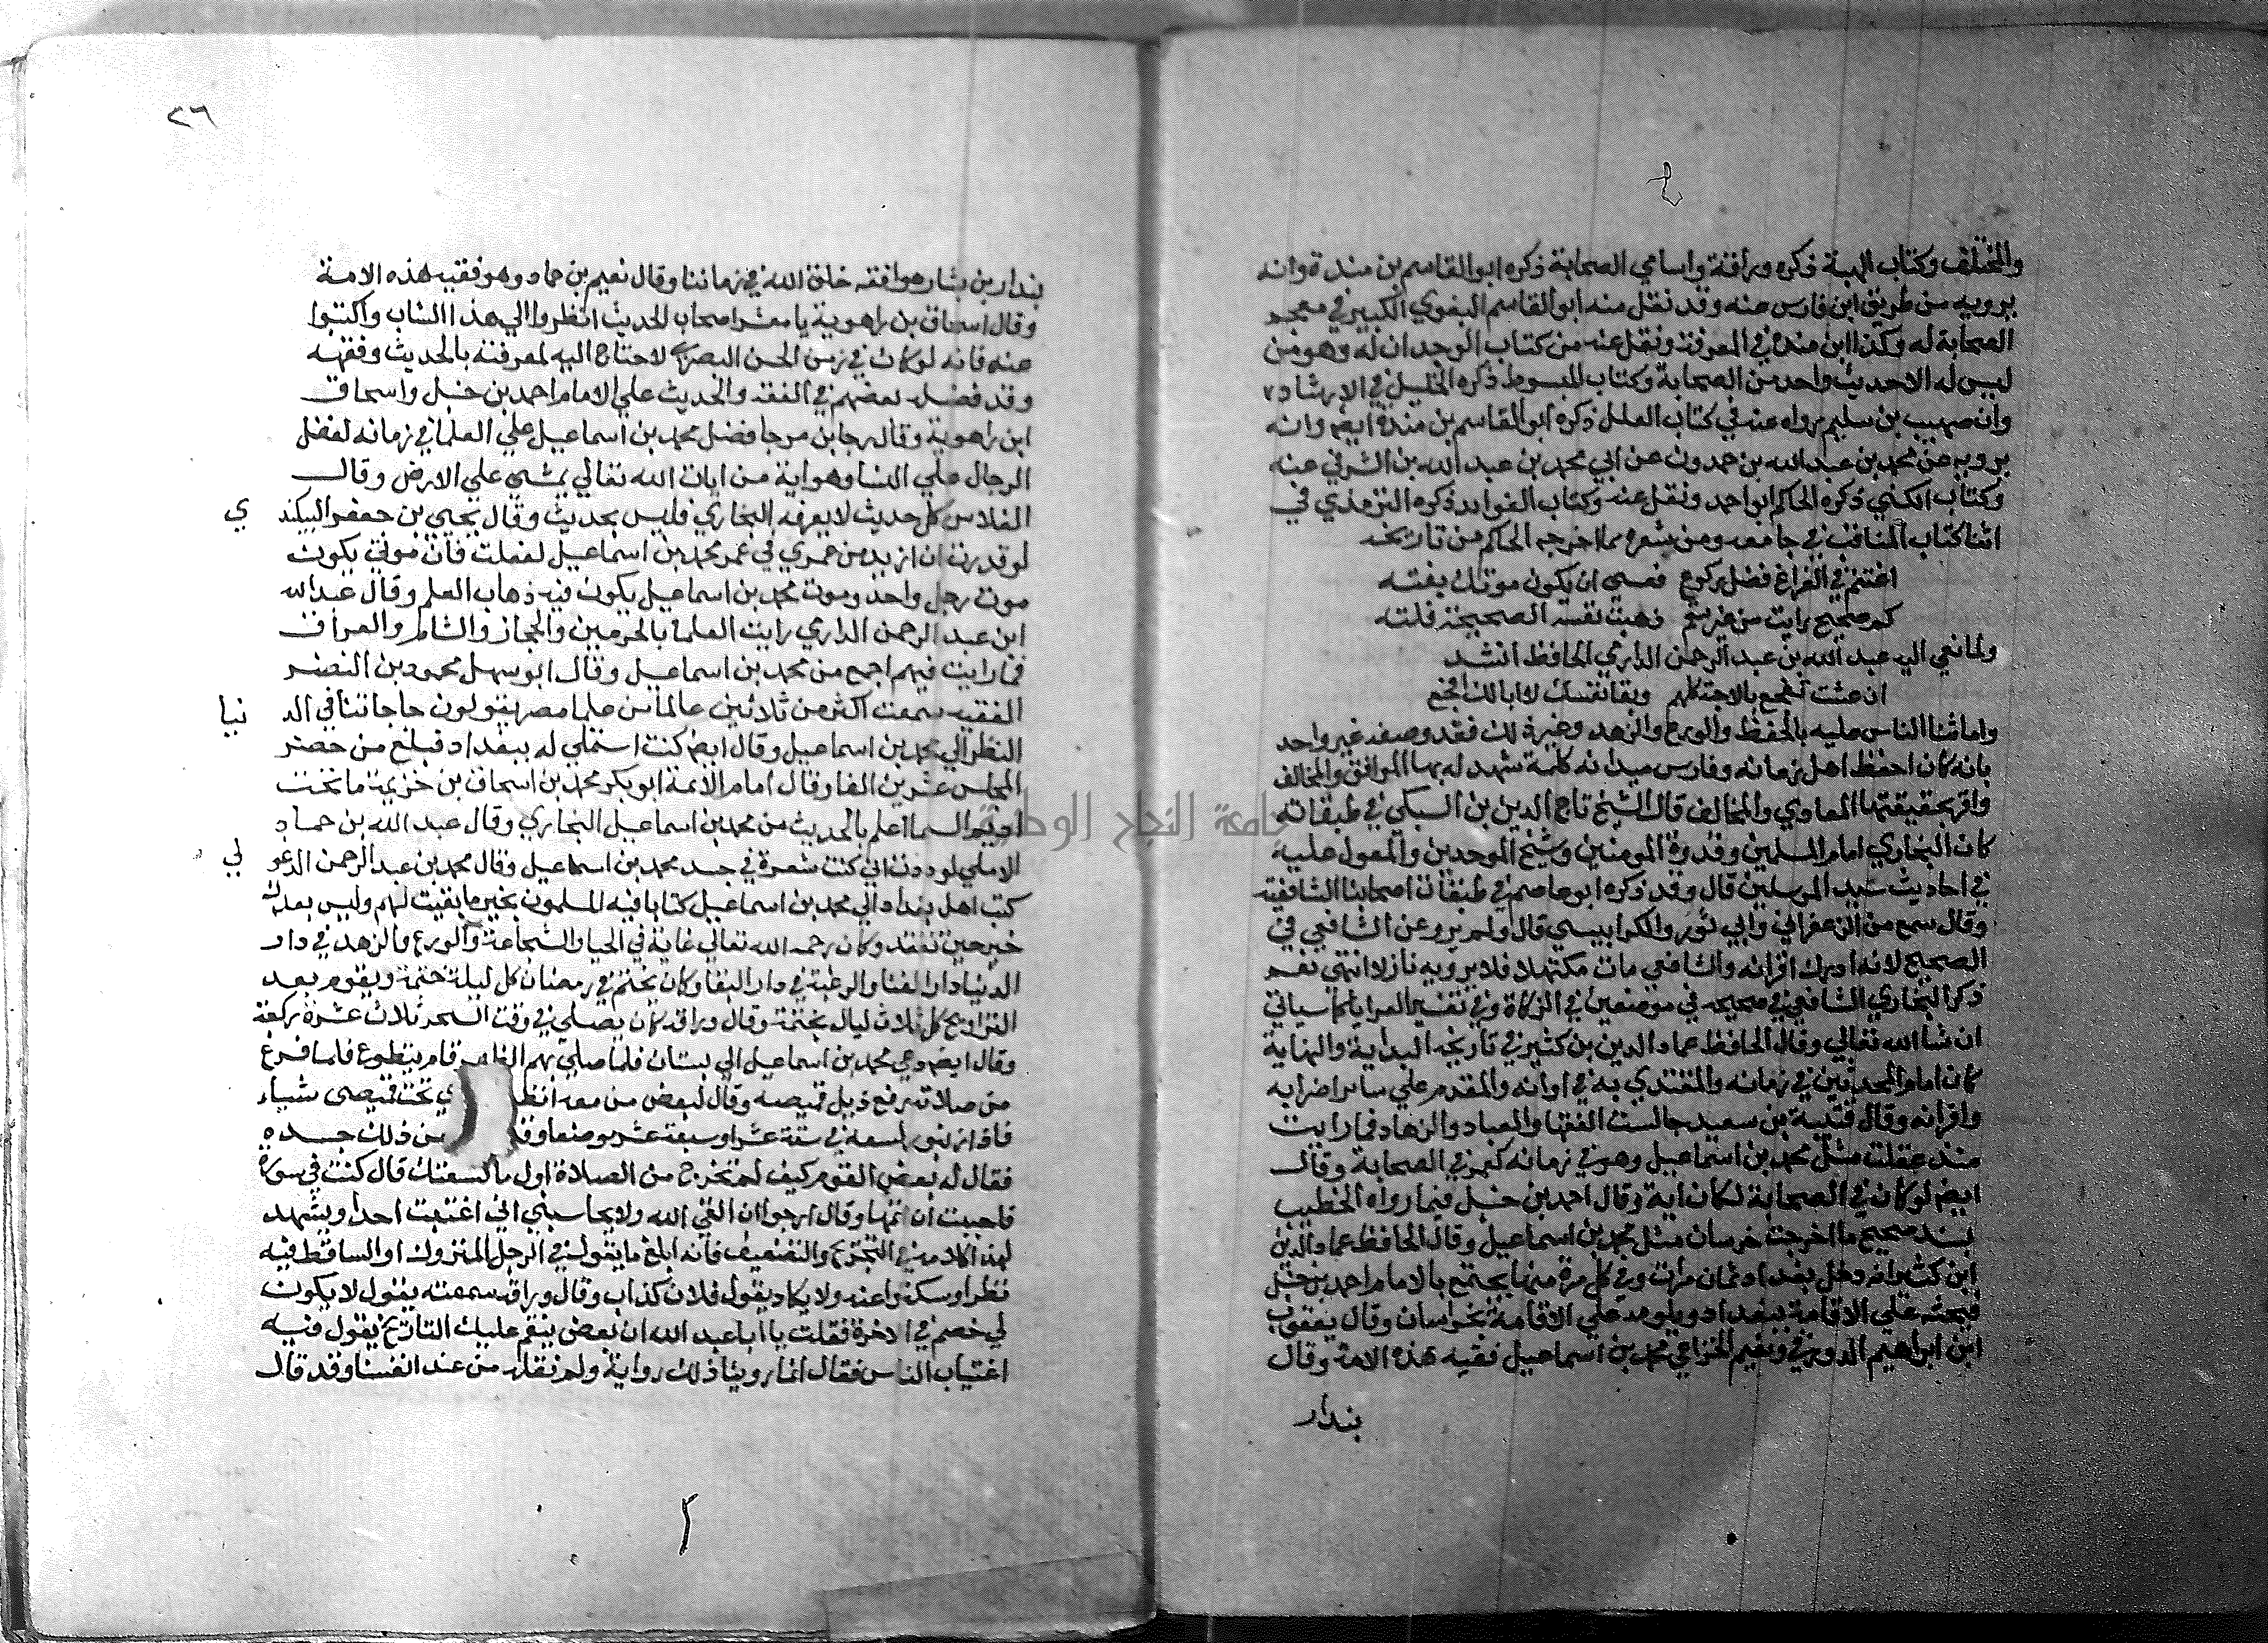 والمختلف وكتاب الهبة ذكره وراقة واسامي الصحابة ذكره ابو القاسم بن مندة وانه
يرويه من طريق ابن فارس عنه وقد نقل منه ابو القاسم البغوي الكبير في معجم
الصحابة له وكذا ابن منده في المعرفة ونقل عنه من كتاب الوجدان له وهو من
ليس له الا حديث واحد من الصحابة وكتاب المبسوط ذكره الخليل في الارشاد
وان مهيب بن سليم رواه عنه في كتاب العلل ذكره ابو القاسم بن مندة ايض وانه
يرويه عن محمد بن عبد الله بن حمدون عن ابي محمد بن عبد الله بن الشرقي عنه
وكتاب الكني ذكره الحاكم ابو احمد ونقل عنه وكتاب الفوايد ذكره الترمذي في
اثنا كتاب المناقب في جامعه ومن شعره مما اخرجه الحاكم من تاريخه
اغتنم في الفراغ فضل ركوع فعسي ان يكون موتك بغته
كم صحيح رايت من غير سقم ذهبت نفسه الصحيحة فلته
ولما نعي اليه عبد الله بن عبد الرحمن الدارمي الحافظ انشد
ان عشت تفجع بالاحبة كلهم وبقا نفسك لا ابا لك افجع
واما ثنا الناس عليه بالحفظ والورع والزهد وغير ذلك فقد وصفه غير واحد
بانه كان احفظ اهل زمانه وفارس ميدانه كلمة شهد له بها الموافق والمخالف
واقر بحقيقتها المعادي والمخالف قال الشيخ تاج الدين بن السبكي في طبقاته
كان البخاري امام المسلمين وقدوة المومنين وشيخ الموحدين والمعول عليه
في احاديث سيد المرسلين قال وقد ذكره ابو عاصم في طبقات اصحابنا الشافعية
وقال سمع من الزعفراني وابي ثور والكرابيسي قال ولم يرو عن الشافعي في
الصحيح لانه ادرك اقرانه والشافعي مات مكتهلا فلا يرويه نازلا انتهي نعم
ذكر البخاري الشافعي في صحيحه في موضعين في الزكاة وفي تفسير العرايا كما سياتي
ان شا الله تعالي وقال الحافظ عماد الدين بن كثير في تاريخه البداية والنهاية
كان امام المحدثين في زمانه والمقتدي به في اوانه والمقدم علي ساير اضرابه
واقرانه وقال قتيبة بن سعيد جالست الفقها والعباد والزهاد فما رايت
منذ عقلت مثل محمد بن اسماعيل وهو في زمانه كعمر في الصحابة وقال
ايض لو كان في الصحابة لكان اية وقال احمد بن حنبل فيما رواه الخطيب
بسند صحيح ما اخرجت خرسان مثل محمد بن اسماعيل وقال الحافظ عماد الدين
ابن كثير انه دخل بغداد ثمان مرات وفي كل مرة منها يجتمع بالامام احمد بن حنبل
فيحثه علي الاقامة ببغداد ويلومه علي الاقامة بخراسان وقال يعقوب
ابن ابراهيم الدورقي ونعيم الخزاعي محمد بن اسماعيل فقيه هذه الامة وقال
بندار
٢٦
بندار بن بشار هو افقه خلق الله في زماننا وقال نعيم بن حماد وهو فقيه هذه الامة
وقال اسحاق بن راهوية يا معشر اصحاب الحديث انظروا الي هذا الشاب واكتبوا
عنه فانه لو كان في زمن الحسن البصري لاحتاج اليه لمعرفته بالحديث وفقهه
وقد فضله بعضهم في الفقه والحديث علي الامام احمد بن حنبل واسحاق
ابن راهوية وقال رجا بن مرجا فضل محمد بن اسماعيل علي العلما في زمانه لفضل
الرجال علي النسا وهو اية من ايات الله تعالي يمشي علي الارض وقال
الفلاس كل حديث لا يعرفه البخاري فليس بحديث وقال يحيي بن جعفر البيكندي
لو قدرت ان ازيد من عمري في عمر محمد بن اسماعيل لفعلت فان موتي يكون
موت رجل واحد وموت محمد بن اسماعيل يكون فيه ذهاب العلم وقال عبد الله
ابن عبد الرحمن الدارمي رايت العلما بالحرمين والحجاز والشام والعراق
فما رايت فيهم اجمع من محمد بن اسماعيل وقال ابو سهل محمود بن النضر
الفقيه سمعت اكثر من ثلاثين عالما من علما مصر يقولون حاجاتنا في الدنيا
النظر الي محمد بن اسماعيل وقال ايض كنت استملي له ببغداد فبلغ من حضر
المجلس عشرين الفا وقال امام الائمة ابو بكر محمد بن اسحاق بن خزيمة ما تحت
اديم السما اعلم بالحديث من محمد بن اسماعيل البخاري وقال عبد الله بن حماد
الاملي لوددت اني كنت شعرة في جسد محمد بن اسماعيل وقال محمد بن عبد الرحمن الدغولي
كتب اهل بغداد الي محمد بن اسماعيل كتابا فيه المسلمون بخير ما بقيت لهم وليس بعدك
خير حين تفتقد وكان رحمه الله تعالي غاية في الحيا والشجاعة والورع والزهد في دار
الدنيا دار الفنا والرغبة في دار البقا وكان يختم في رمضان كل ليلة ختمة ويقوم بعد
التراويح كل ثلاث ليال بختمة وقال وراقه كان يصلي في وقت السحر ثلاث عشرة ركعة
وقال ايض دعي محمد بن اسماعيل الي بستان فلما صلي بهم الظهر قام يتطوع فلما فرغ
من صلاته رفع ذيل قميصه وقال لبعض من معه انظر تحت قميصي شياء
فاذا زنبور لسعه في ستة عشر او سبعة عشر موضعا وقد من ذلك جسده
فقال له بعض القوم كيف لم تخرج من الصلاة اول ما لسعتك قال كنت في سورة
فاحببت ان اتمها وقال ارجوا ان القي الله ولا يحاسبني اني اغتبت احدا ويشهد
لهذا كلامه في التجريح والتضعيف فانه ابلغ ما يقول في الرجل المتروك او الساقط فيه
نظر او سكتوا عنه ولا يكاد يقول فلان كذاب وقال وراقه سمعته يقول لا يكون
لي خصم في الاخرة فقلت يا ابا عبد الله ان بعض ينقم عليك التاريخ يقول فيه
اغتياب الناس فقال انما روينا ذلك رواية ولم نقله من عند انفسنا وقد قال
جامعة النجاح الوطنية